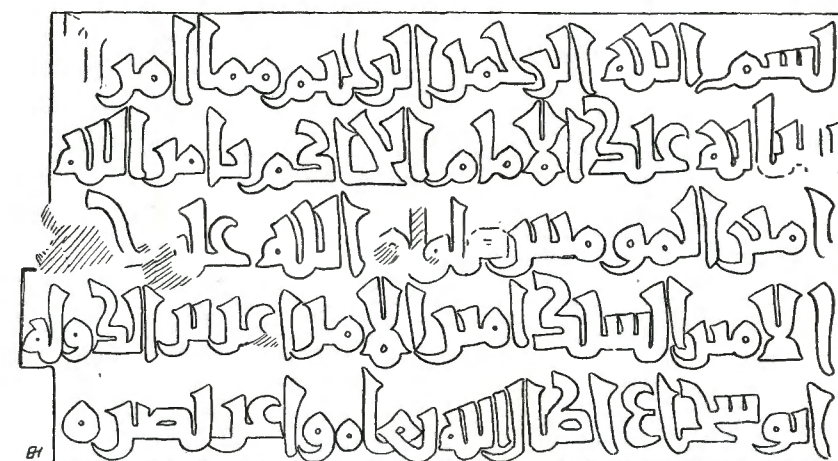 بسم الله الرحمن الرحيم مما امر
عبد الامام الحاكم بامر الله
امير المومنين صلوات الله عليه
الامير السيد امير الامرا عزيز الدوله
ابو شجاع اطال الله بقاه واعز نصره